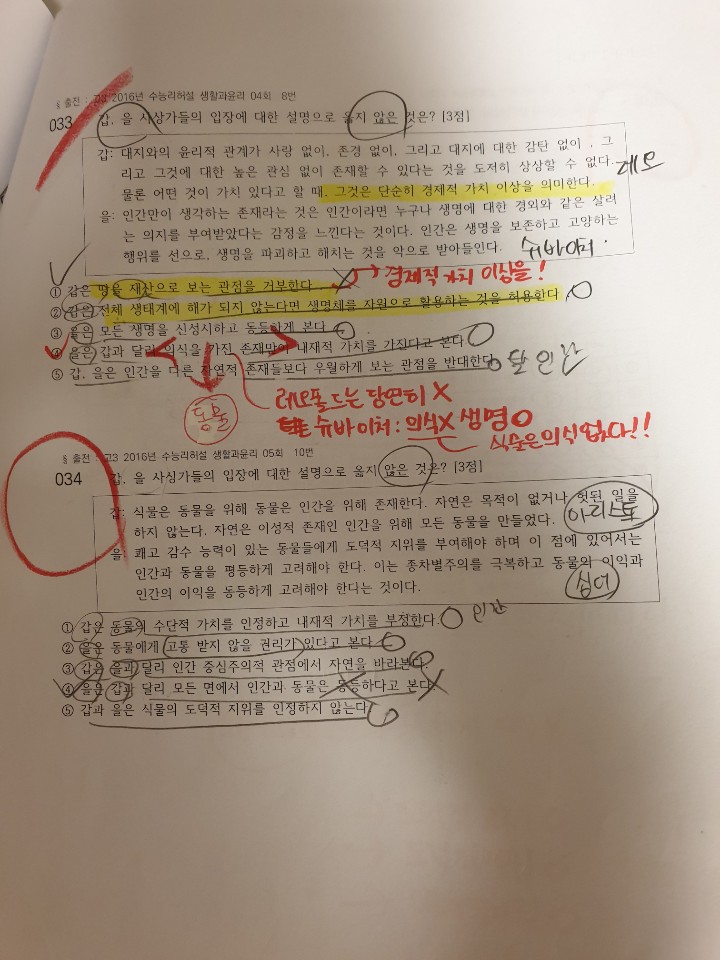 § 출전 : 고3 2016년 수능리허설 생활과윤리 04회 8번
033 갑, 을 사상가들의 입장에 대한 설명으로 옳지 않은 것은? [3점]
갑: 대지와의 윤리적 관계가 사랑 없이, 존경 없이, 그리고 대지에 대한 감탄 없이, 그
리고 그것에 대한 높은 관심 없이 존재할 수 있다는 것을 도저히 상상할 수 없다.
물론 어떤 것이 가치 있다고 할 때, 그것은 단순히 경제적 가치 이상을 의미한다. 레오
을: 인간만이 생각하는 존재라는 것은 인간이라면 누구나 생명에 대한 경외와 같은 살려
는 의지를 부여받았다는 감정을 느낀다는 것이다. 인간은 생명을 보존하고 고양하는
행위를 선으로, 생명을 파괴하고 해치는 것을 악으로 받아들인다. 슈바이처.
① 갑은 땅을 재산으로 보는 관점을 거부한다. X → 경제적 가치 이상을!
② 갑은 전체 생태계에 해가 되지 않는다면 생명체를 자원으로 활용하는 것을 허용한다. O
③ 을은 모든 생명을 신성시하고 동등하게 본다. O
④ 을은 갑과 달리 의식을 가진 존재만이 내재적 가치를 가진다고 본다. O
⑤ 갑, 을은 인간을 다른 자연적 존재들보다 우월하게 보는 관점을 반대한다. O 탈인간
동물
레오폴드는 당연히 X
슈바이처 : 의식X 생명O
식물은 의식 없다!!
§ 출전 : 고3 2016년 수능리허설 생활과윤리 05회 10번
034 갑, 을 사상가들의 입장에 대한 설명으로 옳지 않은 것은? [3점]
갑: 식물은 동물을 위해 동물은 인간을 위해 존재한다. 자연은 목적이 없거나 헛된 일을
하지 않는다. 자연은 이성적 존재인 인간을 위해 모든 동물을 만들었다. 아리스토
을: 쾌고 감수 능력이 있는 동물들에게 도덕적 지위를 부여해야 하며 이 점에 있어서는
인간과 동물을 평등하게 고려해야 한다. 이는 종차별주의를 극복하고 동물의 이익과
인간의 이익을 동등하게 고려해야 한다는 것이다. 싱어
① 갑은 동물의 수단적 가치를 인정하고 내재적 가치를 부정한다. O 인간
② 을은 동물에게 고통 받지 않을 권리가 있다고 본다. O
③ 갑은 을과 달리 인간 중심주의적 관점에서 자연을 바라본다. O
④ 을은 갑과 달리 모든 면에서 인간과 동물은 동등하다고 본다. X
⑤ 갑과 을은 식물의 도덕적 지위를 인정하지 않는다. O